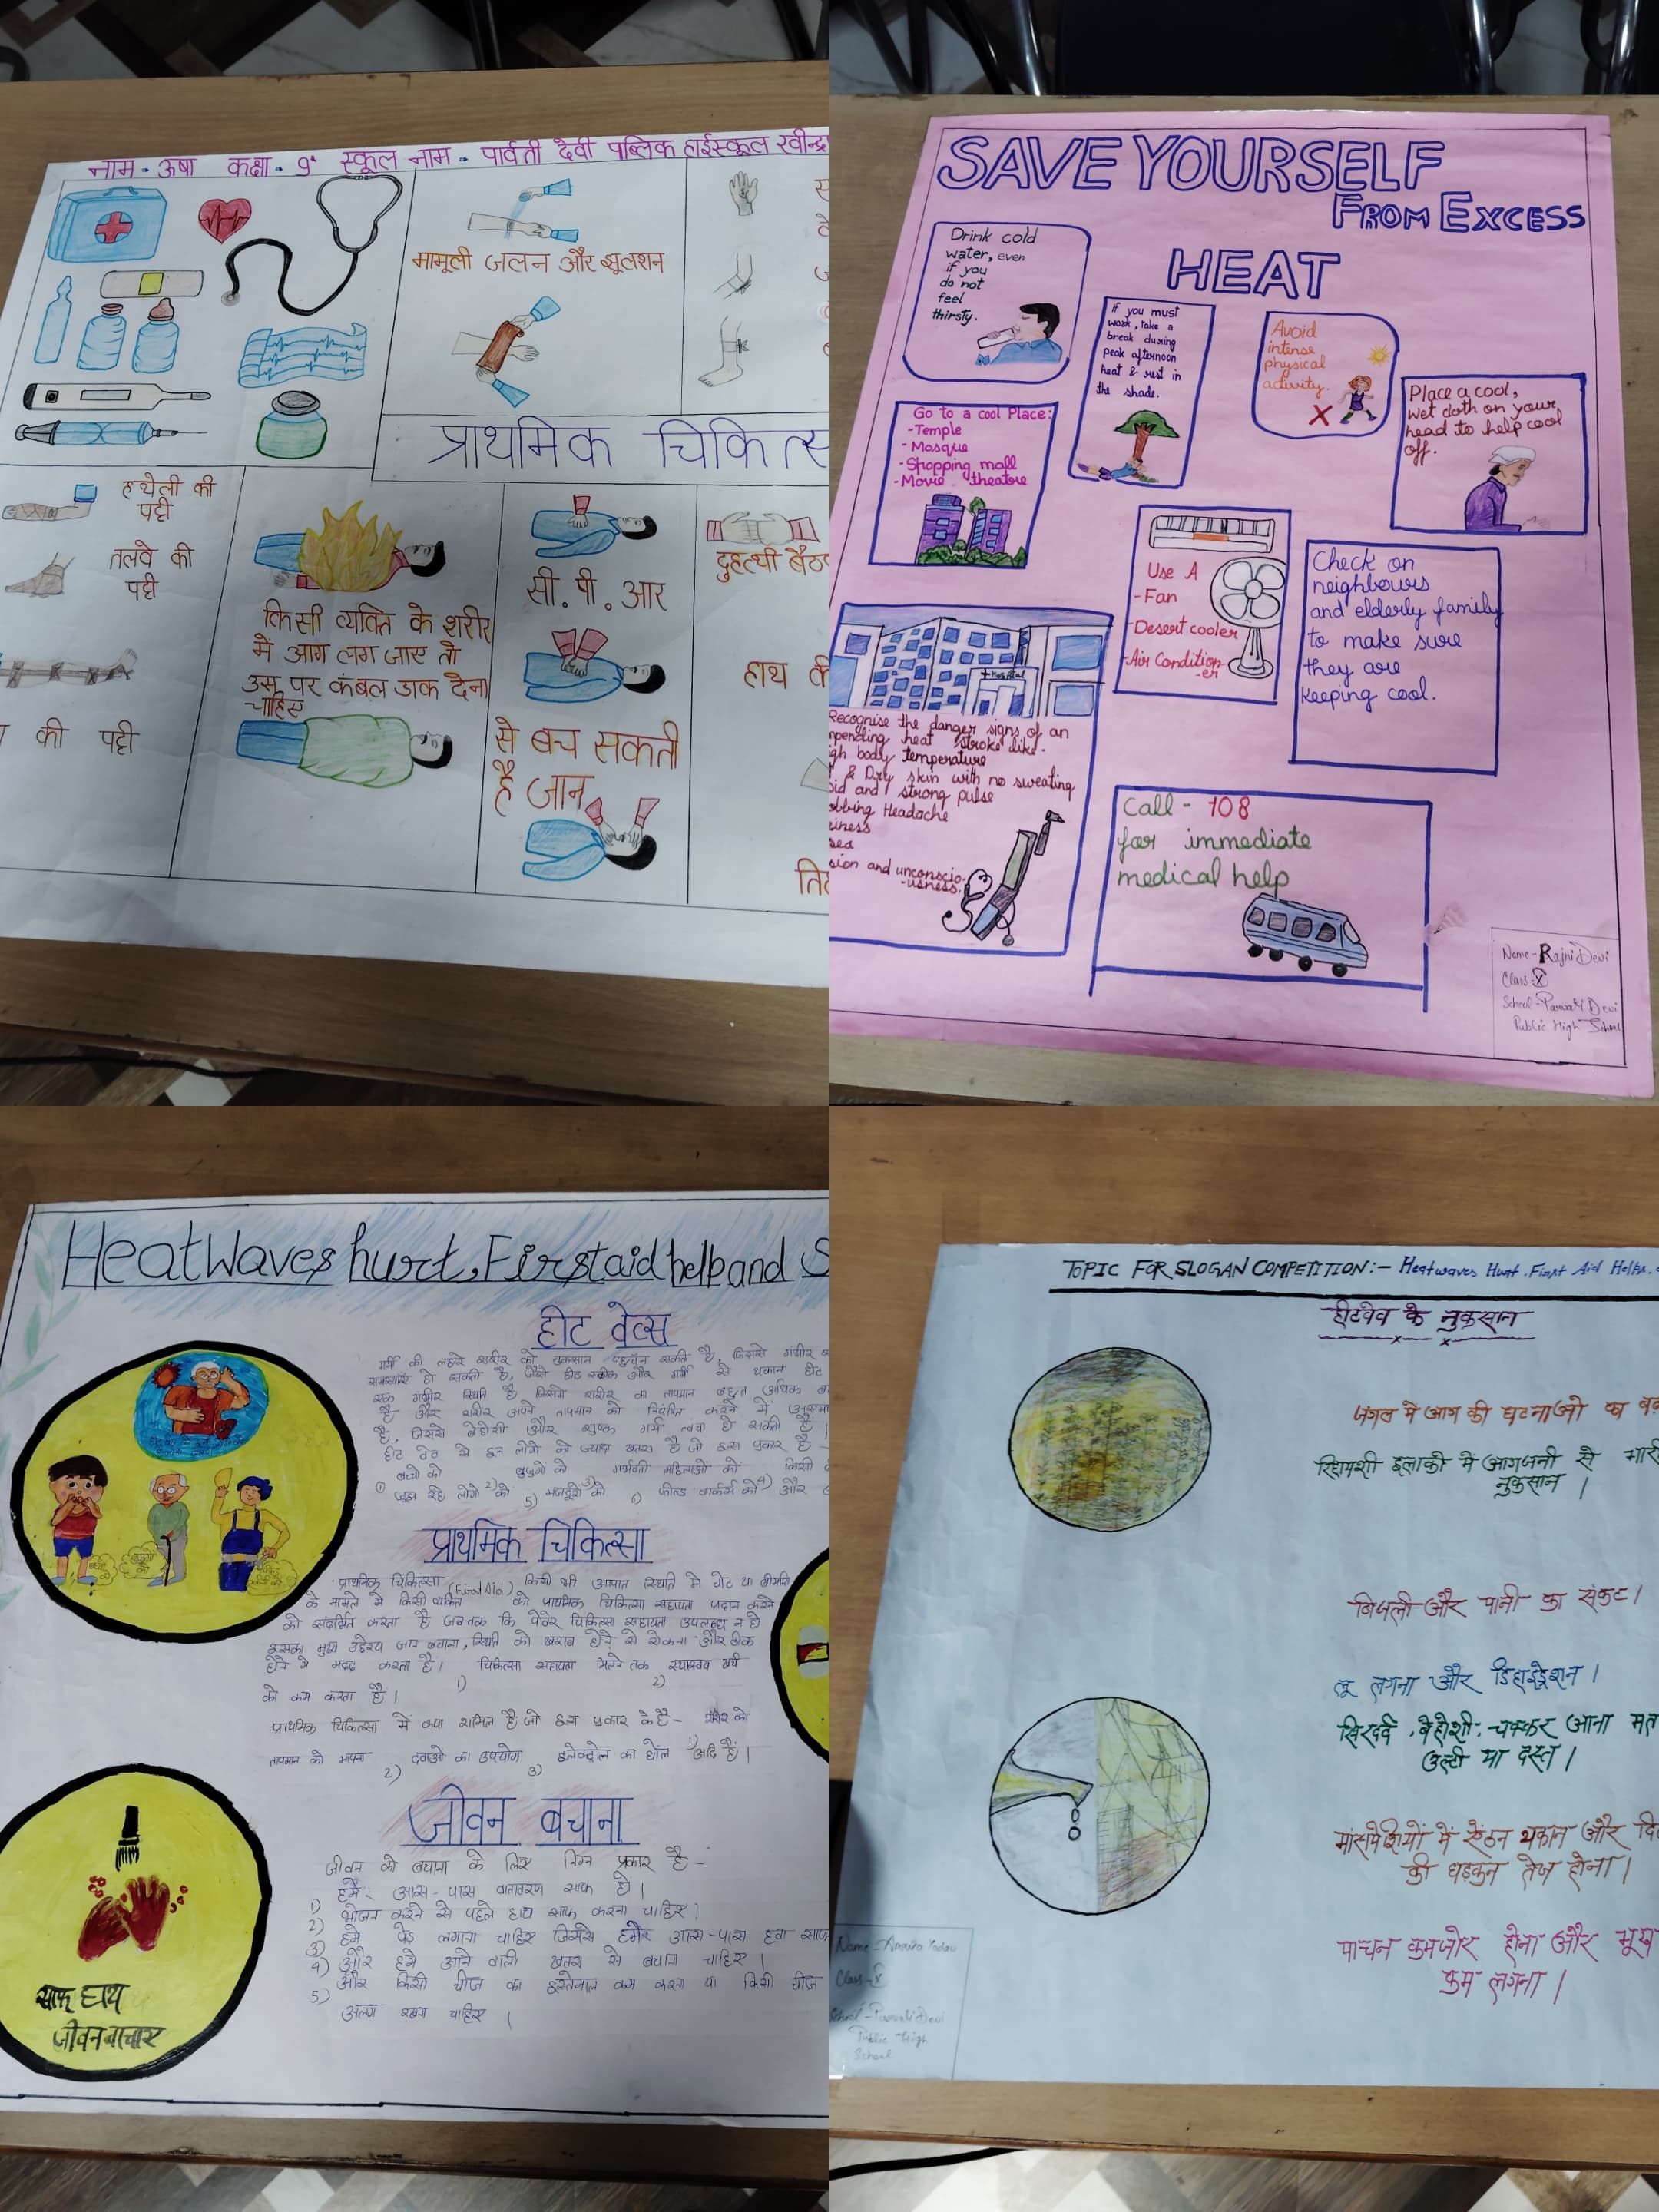 नाम - ऊषा कक्षा - 9ᵗʰ स्कूल नाम - पार्वती देवी पब्लिक हाईस्कूल रवीन्द्र
मामूली जलन और झूलशन
प्राथमिक चिकित्स
हथेली की
पट्टी
तलवे की
पट्टी
की पट्टी
किसी व्यक्ति के शरीर
में आग लग जाए तो
उस पर कंबल डाक देना
चाहिए
सी. पी. आर
से बच सकती
है जान
दुहत्थी बैठ
हाथ की
SAVE YOURSELF
FROM EXCESS
HEAT
Drink cold
water, even
if you
do not
feel
thirsty.
If you must
work, take a
break during
peak afternoon
heat & rest in
the shade.
Avoid
intense
physical
activity.
Place a cool,
wet cloth on your
head to help cool
off.
Go to a cool Place:
-Temple
-Mosque
-Shopping mall
-Movie theatre
Use A
-Fan
-Desert cooler
-Air Condition-
-er
Check on
neighbours
and elderly family
to make sure
they are
keeping cool.
Hospital
Recognise the danger signs of an
mpending heat stroke like.
gh body temperature
& Dry skin with no sweating
pid and strong pulse
obbing Headache
ziness
sea
sion and unconscio-
-usness.
Call - 108
for immediate
medical help
Name - Rajni Devi
Class X
School - Parwati Devi
Public High School
Heat Waves hurt, First aid help and S
हीट वेव्स
गर्मी की लहरे शरीर को नुकसान पहुचा सकती है, जिससे गंभीर
समस्याएं हो सकती है, जैसे हीट स्ट्रोक और गर्मी से थकान हीट
एक गंभीर स्थिति है, जिसमे शरीर का तापमान बहुत अधिक
है और शरीर अपने तापमान को नियंत्रित करने में
है, जिससे बेहोशी और शुष्क गर्म त्वचा हो सकती है।
हीट वेव से इन लोगो को ज्यादा खतरा है जो इस प्रकार है -
बच्चो को बुजुर्गो को गर्भवती महिलाओं को किसी
जूझ रहे लोगो को मजदूरो को फील्ड वाकर्स को और
प्राथमिक चिकित्सा
प्राथमिक चिकित्सा (First Aid) किसी भी आपात स्थिति मे चोट या बीमारी
के मामले मे किसी व्यक्ति को प्राथमिक चिकित्सा सहायता प्रदान करने
को संदर्भित करता है जब तक कि पेवेर चिकित्सा सहायता उपलब्ध न हो
इसका मुख्य उद्देश्य जान बचाना, स्थिति को खराब होने से रोकना और ठीक
होने मे मदद करता है। चिकित्सा सहायता मिलने तक स्वास्थ्य खर्च
को कम करता है।
प्राथमिक चिकित्सा मे क्या शामिल है जो इस प्रकार के है - शरीर को
तापमान को मापना 2) दवाओ का उपयोग 3) इलेक्ट्रोल का घोल आदि है।
जीवन बचाना
जीवन को बचाना के लिए निम्न प्रकार है -
1) हमेर आस-पास वातावरण साफ हो।
2) भोजन करने से पहले हाथ साफ करना चाहिए।
3) हमे पेड़ लगाना चाहिए जिससे हमेरे आस-पास हवा साफ
4) और हमे आने वाली खतरा से बचाना चाहिए।
5) और किसी चीज का इस्तेमाल कम करना या किसी चीज
अलग रखना चाहिए।
साफ हाथ
जीवन बाचाए
TOPIC FOR SLOGAN COMPETITION:- Heatwaves Hurt, First Aid Helps,
हीटवेव के नुकसान
जंगल मे आग की घटनाओ का
रिहायशी इलाको में आगजनी से भारी
नुकसान।
बिजली और पानी का संकट।
लू लगना और डिहाइड्रेशन।
सिरदर्द, बेहोशी, चक्कर आना मत
उल्टी या दस्त।
मांसपेशियों में ऐंठन थकान और दि
की धड़कन तेज होना।
पाचन कमजोर होना और भूख
कम लगना।
Yadav
Class - X
School - Parwati Devi
Public High
School